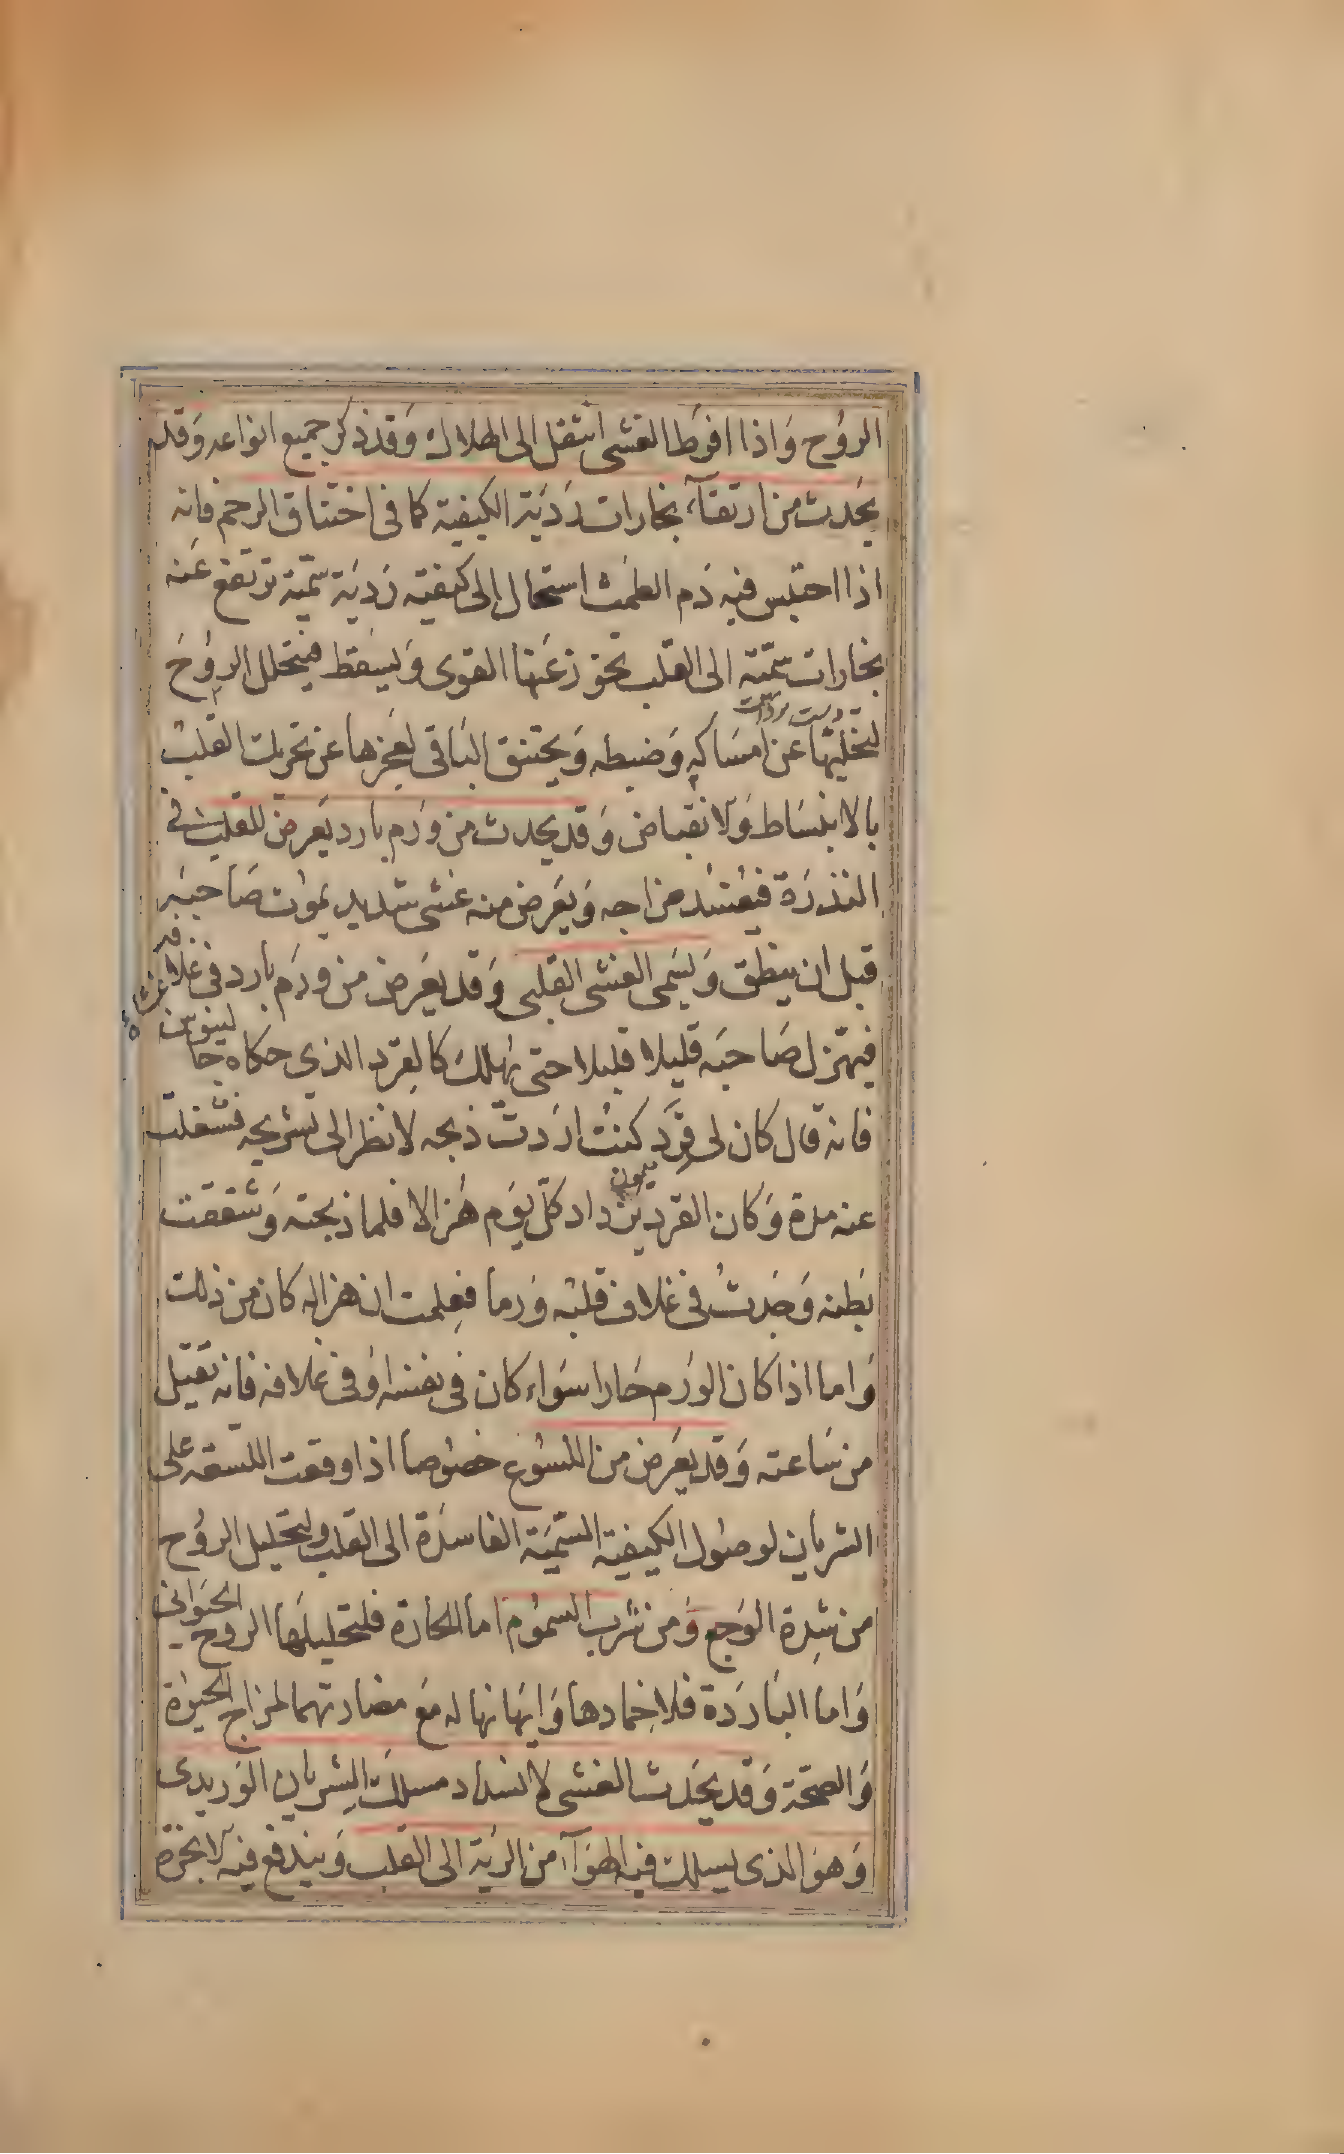 الروُح وَاذا افرطَ الغشى انتقل الى الهلاك وَقد ذكر جميع انواعه وَقد
يحَدث من ارتقآء بخارات رَديَة الكيفية كما فى اختناق الرحم فانه
اذا احتبس فيه دَم الطمَث استحال الى كيفية رَديَة سمّية ترتفع عَنه
بخارات سمّية الى القلب تخوز عَنها القوى وَيسقط فيتحلل الروُحَ
لتخليتها عن امسَاكه وَضبطه وَيختنق البَاقى لعجزها عن تحريك القلب
دست برداشت
بالانبسَاط وَالانقباض وَقد يحدث من وَرَم بارد يَعرض للقلب فى
الندرَة فيفسُد مزاجه وَيعَرض منه غشى شديد يموُت صَاحبَه
قبل ان ينطق وَيسَمى الغشى القلبى وَقد يعَرض من ورَم بارد فى غلافه
غشاء
فيهزل صَاحبَه قليلا قليلا حتى يَهلك كالقِرد الذى حكاه جالينوس
فانه قال كان لى قرَد كنتُ ارَدت ذبحه لانظر الى تشريحه فشغلت
عنه مدة وَكان القرد يزداد كلّ يوَم هُزالا فلما ذبحته وَشققت
ميمون
بَطنه وَجَدتُ فى غلاف قلبَه وَرما فعِلمت ان هزاله كان من ذلك
وَاما اذا كان الورَم حَارا سوَاء كان فى نفسه اوَ فى غلافه فانه يقتل
من سَاعته وَقد يعَرض من اللسُوع خصُوصاً اذا وقعت اللسَعة على
الشريان لوصُول الكيفية السّميَة الفاسدَة الى القلب ولتحليل الروُح
من شِدة الوَجع وَمن شرب السموُم اما الحارة فلتحليلهَا الروح الحَيَوانى
وَاما البَاردَة فلاخِمادها وَايهَانها له معَ مضادتهما لمزاج الحيوٰة
وَالصحّة وَقد يحَدث الغشى لانسداد مسلك الِشريان الوَريدى
وَهوَ الذى يسلك فيه الهوَآء من الريَة الى القلب وَيندفع فيه الابخرة